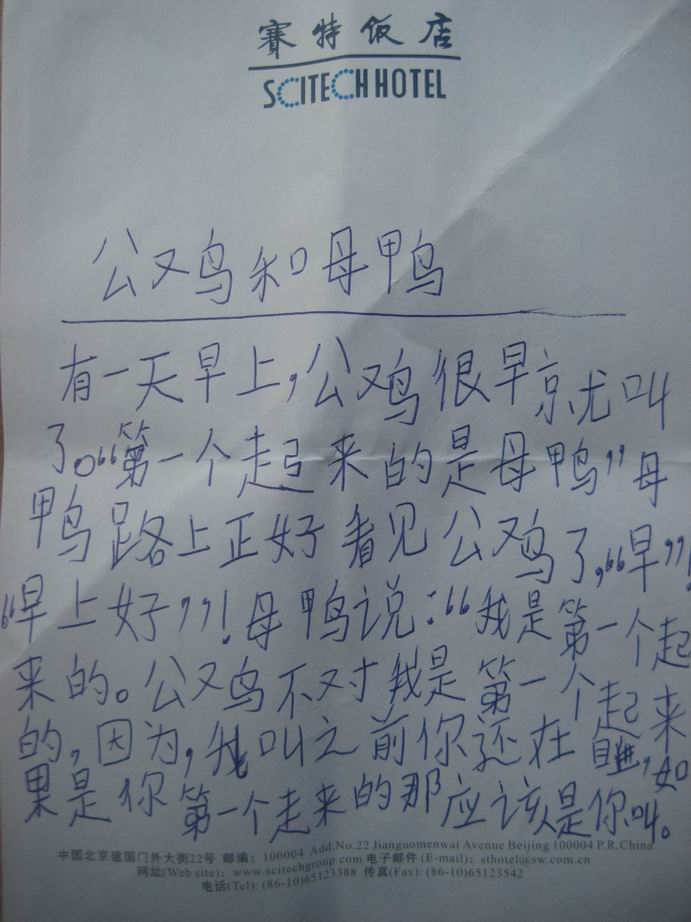 赛特饭店
SCITECH HOTEL
公鸡和母鸭
有一天早上,公鸡很早就叫
了。“第一个起来的是母鸭”母
鸭路上正好看见公鸡了,“早”!
“早上好”!母鸭说:“我是第一个起
来的。公鸡不对我是第一个起来
的,因为,我叫之前你还在睡,如
果是你第一个走来的那应该是你叫。
中国北京建国门外大街22号 邮编:100004 Add:No.22 Jianguomenwai Avenue Beijing 100004 P.R.China
网址(Web site):www.scitechgroup.com 电子邮件(E-mail):sthotel@sw.com.cn
电话(Tel):(86-10)65123388 传真(Fax):(86-10)65123542